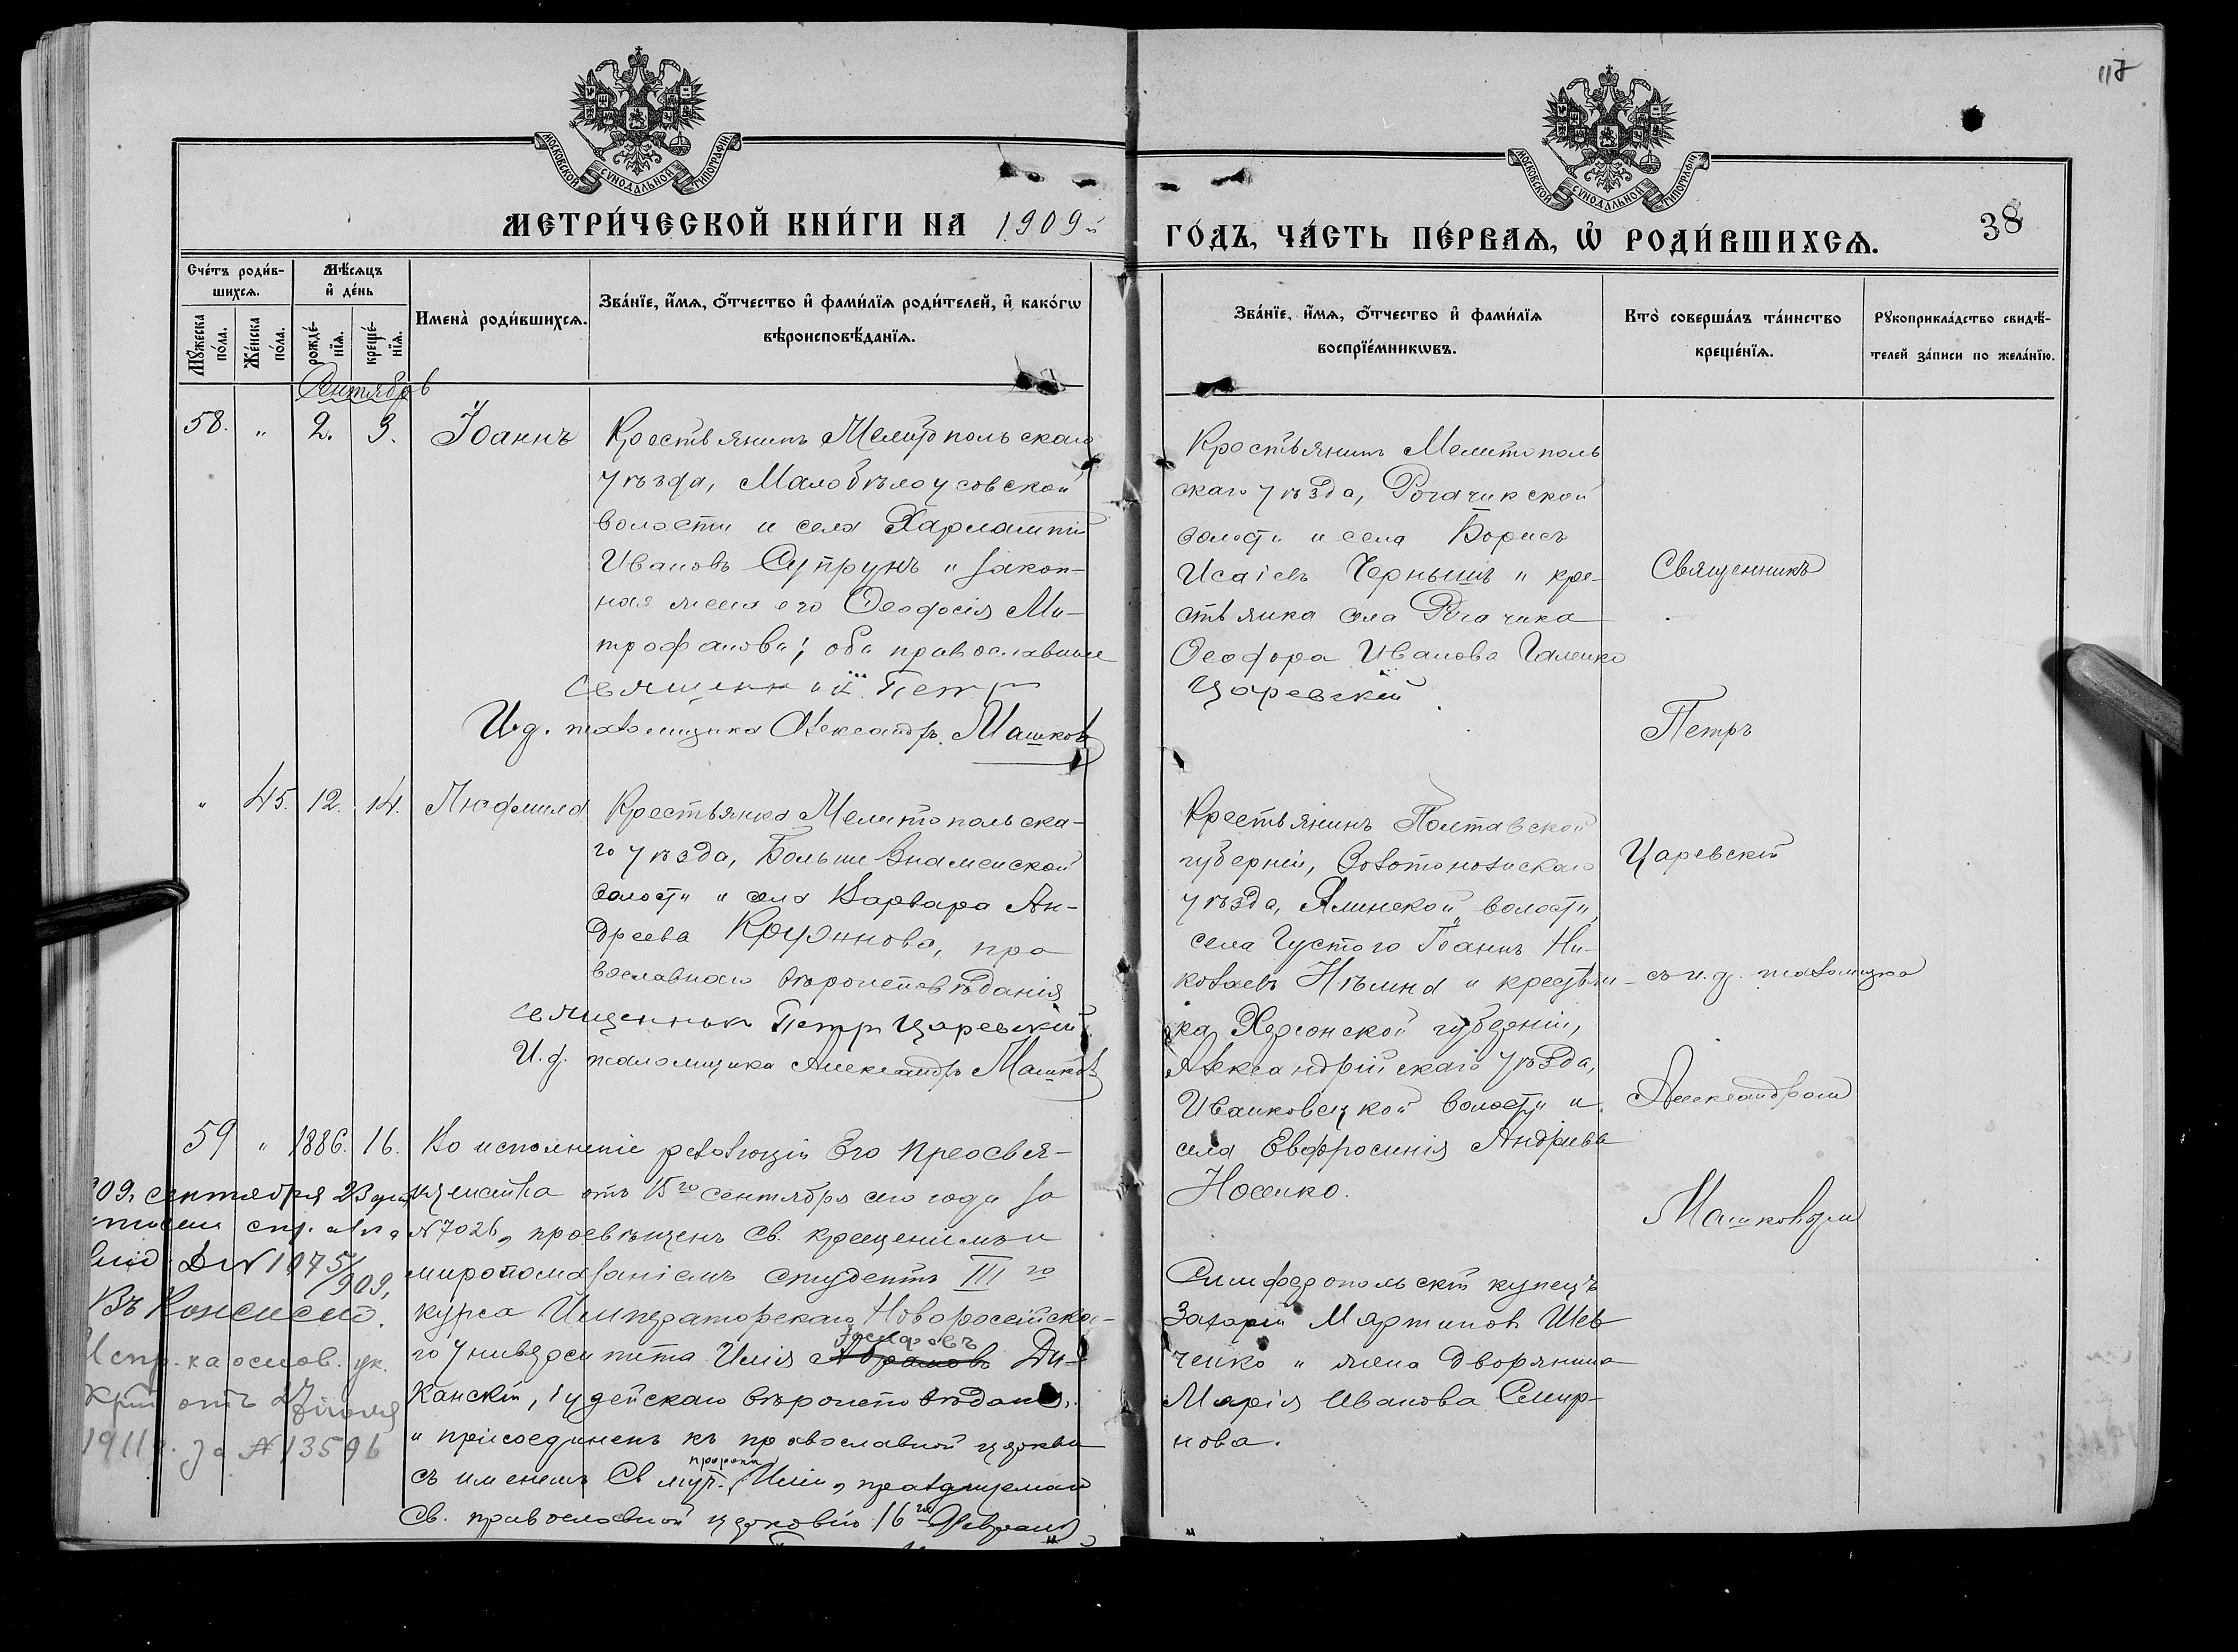 117
МОСКОВСКОЙ СѴНОДАЛЬНОЙ ТИПОГРАФІИ
МОСКОВСКОЙ СѴНОДАЛЬНОЙ ТИПОГРАФІИ
МЕТРИ́ЧЕСКОЙ КНИ́ГИ НА 1909й
ГО́ДЪ, ЧА́СТЬ ПЕ́РВАѦ, Ѡ҆ РОДИ́ВШИХСѦ.
38
Сче́тъ роди́в-
шихсѧ.
Мѣ́сѧцъ
и҆ де́нь
Мꙋ́жеска
по́ла.
Же́нска
по́ла.
рожде́-
нїѧ.
креще́-
нїѧ.
Имена̀ роди́вшихсѧ.
Зва́нїе, и҆́мѧ, ѻ҆́тчество и҆ фами́лїѧ роди́телей, и҆ како́гѡ
вѣроисповѣ́данїѧ.
Зва́нїе, и҆́мѧ, ѻ҆́тчество и҆ фами́лїѧ
воспрїе́мникѡвъ.
Кто̀ соверша́лъ та́инство
креще́нїѧ.
Рꙋкоприкла́дство свидѣ́-
телей за́писи по жела́нїю.
Сентябрь
58. " 2. 3. Іоаннъ
Крестьянинъ Мелитопольскаго
уѣзда, Малобѣлоусовской
волости и села Харлампій
Ивановъ Супрунъ и закон-
ная жена его Ѳеодосія Ми-
трофанова; оба православные
Священникъ Петръ
Царевскій
И.д. псаломщика Александръ Машковъ
Крестьянинъ Мелитополь
скаго уѣзда, Рогачикской
волости и села Борисъ
Исаіевъ Чернышъ и кре-
стьянка села Рогачика
Ѳеодора Иванова Галенко
Священникъ
Петръ
Царевскій
съ и.д. псаломщика
Александромъ
Машковымъ
" 45. 12. 14. Людмила
Крестьянка Мелитопольска-
го уѣзда, Больше Знаменской
волости и села Варвара Ан-
дреева Круфинова, пра
вославнаго вѣроисповѣданія
Священникъ Петръ Царевскій
И.д. псаломщика Александръ Машковъ
Крестьянинъ Полтавской
губерніи, Золотоношскаго
уѣзда, волости,
села Густого Іоаннъ Ни-
колаевъ и крестьян-
ка Херсонской губерніи,
Александрійскаго уѣзда,
Иванковецкой волости и
села Евфросинія Андреева
Носенко.
59 " 1886. 16.
Во исполненіе резолюціи Его Преосвя-
щенства отъ 15го сентября сего года за
N7026, просвѣщенъ Св. крещеніемъ и
миропомазаніемъ студентъ III го
курса Императорскаго Новороссійска-
Іосифовъ
го университета Илія Абрамовъ Ди-
канскій, іудейскаго вѣроисповѣданія,
и присоединенъ къ православной церкви
пророка
съ именемъ Св муч. Иліи, празднуемаго
Св. православной церковію 16го Февраля
Симферопольскій купецъ
Захарій Мартиновъ Шев
ченко и жена дворянина
Марія Иванова Смир-
нова.
909, сентября 23 дня
спр.
N 1075/909.
Въ Консист.
Испр. на основ. ук.
отъ 27 іюля
1911 г. за N 13596